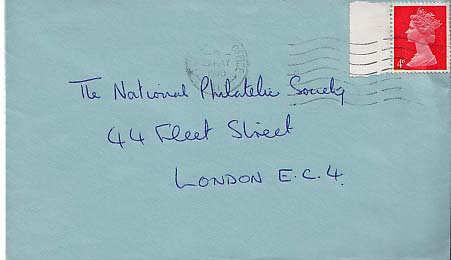 28 MAY
1970
4D
The National Philatelic Society
44 Fleet Street
LONDON E.C.4.